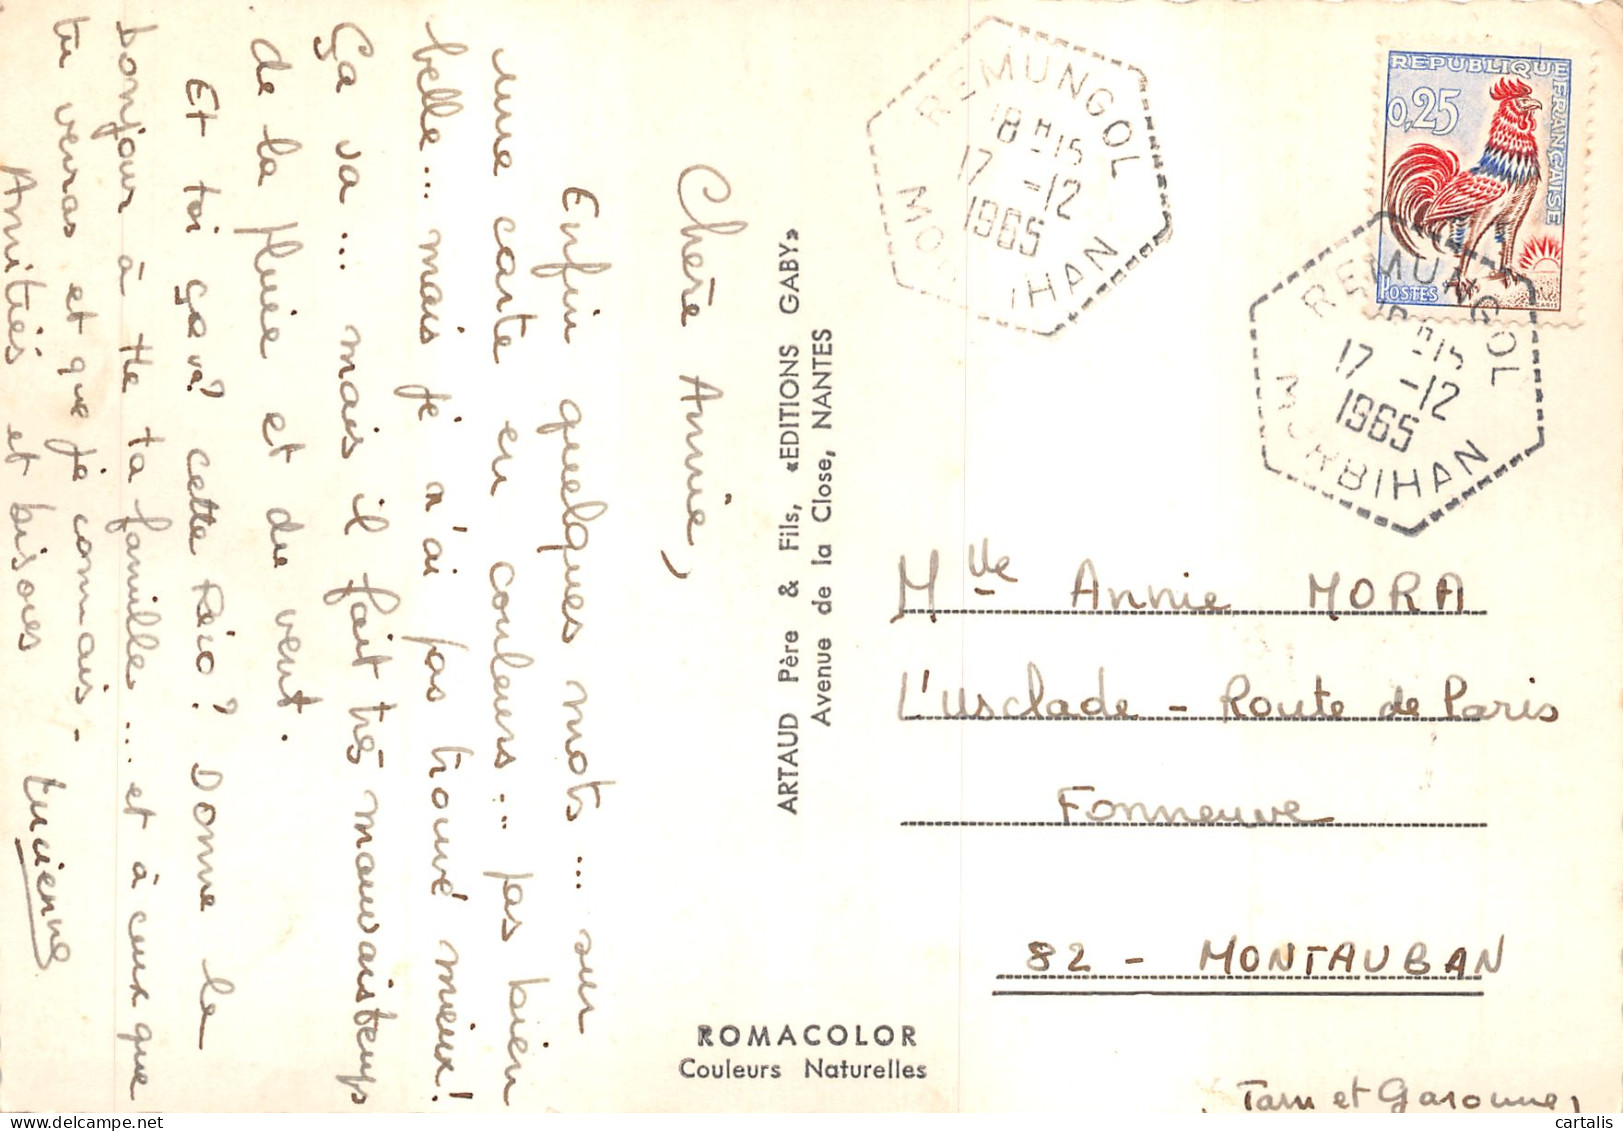 Chère Annie,
Enfin quelques mots... sur
une carte en couleurs... pas bien
belle... mais je n'ai pas trouvé mieux!
Ça va... mais il fait très mauvais temps
de la pluie et du vent.
Et toi ça va? cette
Donne le
bonjour à
ta famille... et à ceux que
tu verras et que je connais.
Amitiés et bisous
Lucienne
ARTAUD Père & Fils, «EDITIONS GABY»
Avenue de la Close, NANTES
ROMACOLOR
Couleurs Naturelles
REMUNGOL
18 H 15
17 -12
1965
MORBIHAN
REPUBLIQUE FRANÇAISE
0,25
POSTES
REMUNGOL
18 H 15
17 -12
1965
MORBIHAN
Mlle Annie MORA
L'Usclade - Route de Paris
Fonneuve
82 - MONTAUBAN
Tarn et Garonne
cartalis